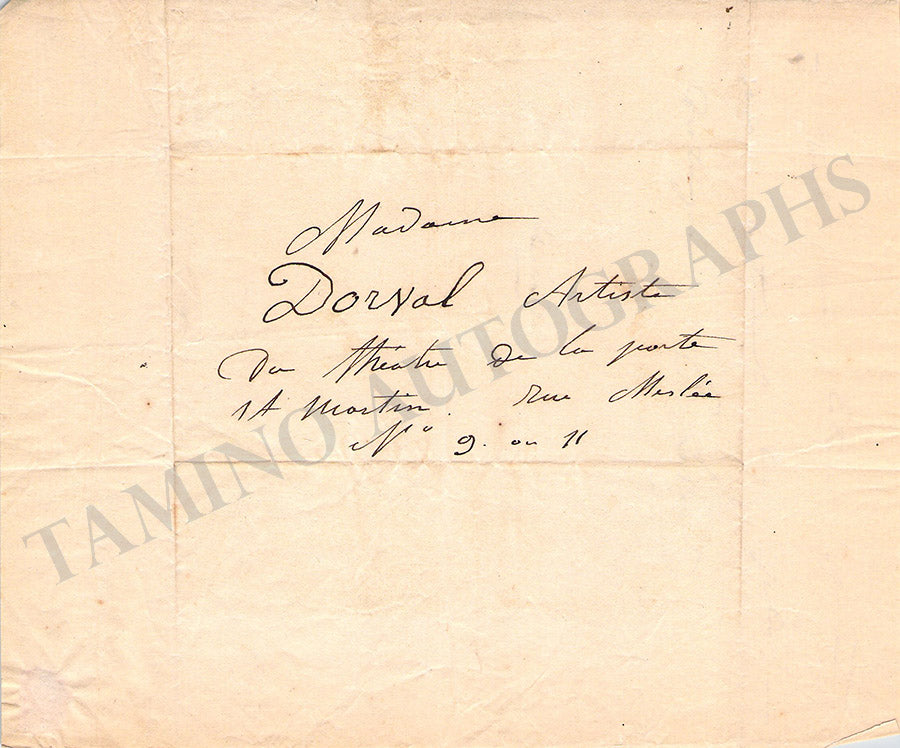 Madame
Dorval Artiste
Du théâtre de la porte
St Martin. rue Meslée
N° 9. ou 11
TAMINO AUTOGRAPHS